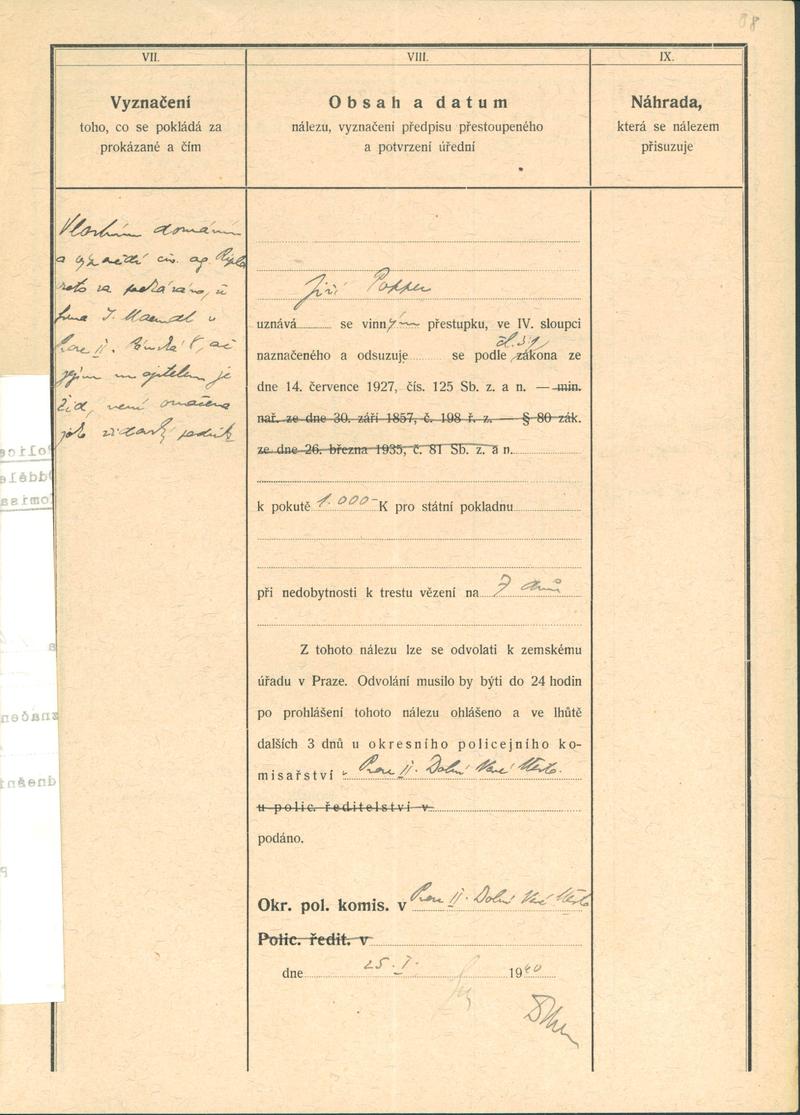 88
VII.
Vyznačení
toho, co se pokládá za
prokázané a čím
VIII.
Obsah a datum
nálezu, vyznačení předpisu přestoupeného
a potvrzení úřední
IX.
Náhrada,
která se nálezem
přisuzuje
Vlastním doznáním
a
za prokázáno, že
firma J.
Praze II. 8, ač
jejím majitelem je
žid, není označena
jako židovský podnik
Jiří Popper
uznává se vinným přestupku, ve IV. sloupci
čl. 3/1
naznačeného a odsuzuje se podle zákona ze
dne 14. července 1927, čís. 125 Sb. z. a n. — min.
nař. ze dne 30. září 1857, č. 198 ř. z. — § 80 zák.
ze dne 26. března 1935, č. 81 Sb. z. a n.
k pokutě 1.000- K pro státní pokladnu
při nedobytnosti k trestu vězení na 7 dnů
Z tohoto nálezu lze se odvolati k zemskému
úřadu v Praze. Odvolání musilo by býti do 24 hodin
po prohlášení tohoto nálezu ohlášeno a ve lhůtě
dalších 3 dnů u okresního policejního ko-
misařství v Praze II. Dolní Nové Město.
u polic. ředitelství v
podáno.
Okr. pol. komis. v Praze II. Dolní Nové Město
Polic. ředit. v
dne 25. I. 1940